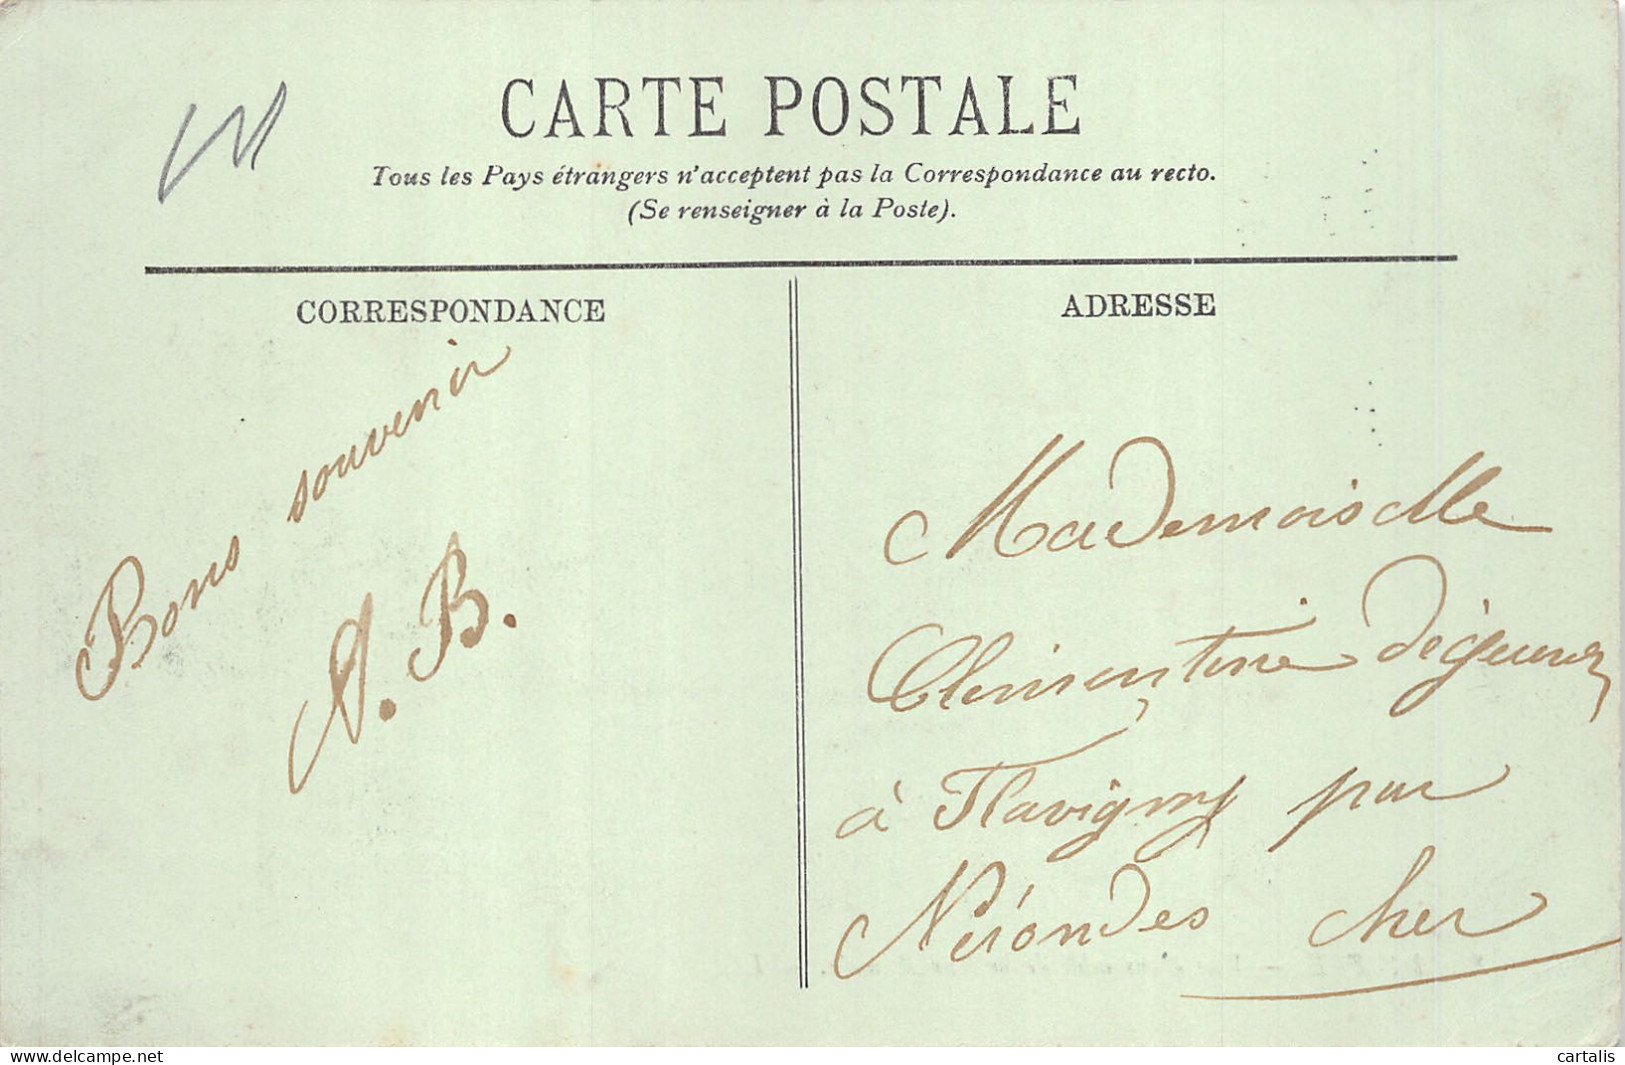 CARTE POSTALE
Tous les Pays étrangers n'acceptent pas la Correspondance au recto.
(Se renseigner à la Poste).
CORRESPONDANCE
ADRESSE
Bons souvenir
A. B.
Mademoiselle
Clémentine
à Flavigny par
Nérondes Cher
delcampe.net
cartalis